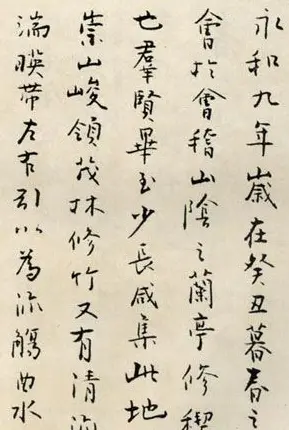 永和九年歲在癸丑暮春之
會於會稽山陰之蘭亭修稧
也羣賢畢至少長咸集此地
崇山峻領茂林修竹又有清流
湍暎帶左右引以為流觴曲水